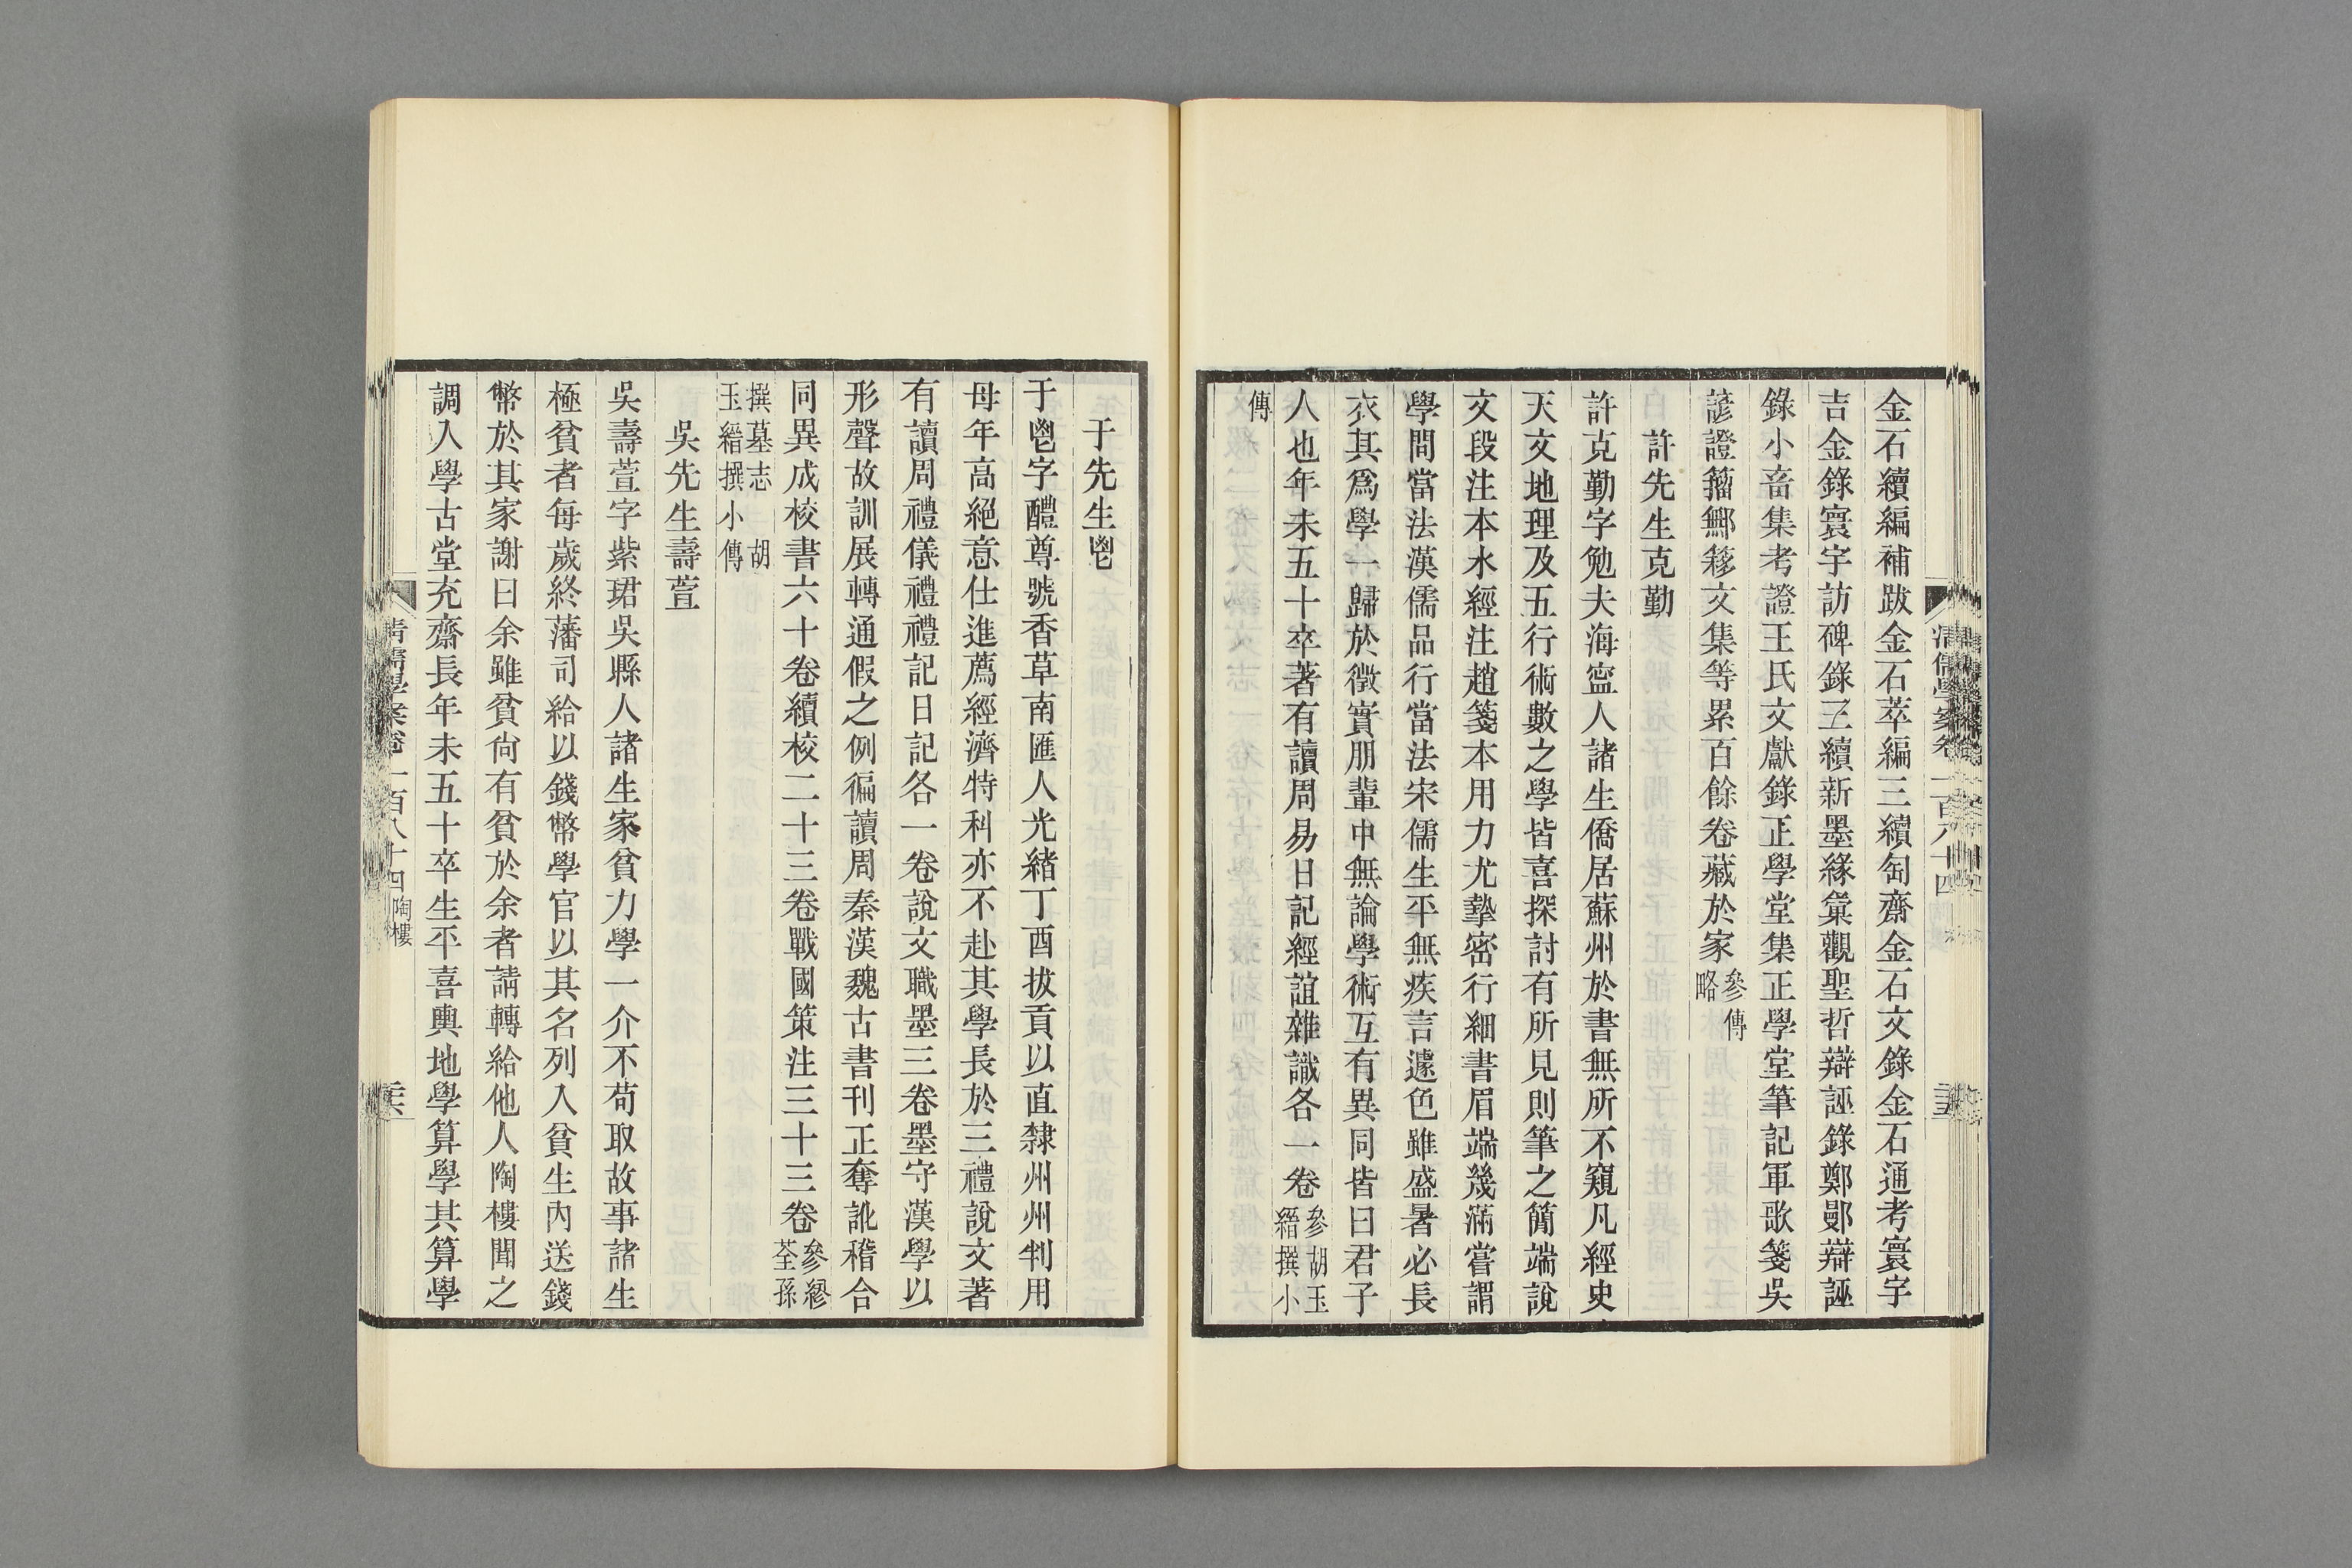 金石續編補跋金石萃編三續匋齋金石文錄金石通考寰宇
吉金錄寰宇訪碑錄三續新墨緣彙觀聖哲辯誣錄鄭鄤辯誣
錄小畜集考證王氏文獻錄正學堂集正學堂筆記軍歌箋吳
諺證籀鄦簃文集等累百餘卷藏於家參傳略
許先生克勤
許克勤字勉夫海寍人諸生僑居蘇州於書無所不窺凡經史
天文地理及五行術數之學皆喜探討有所見則筆之簡端說
文段注本水經注趙箋本用力尤摯密行細書眉端幾滿嘗謂
學問當法漢儒品行當法宋儒生平無疾言遽色雖盛暑必長
衣其爲學一歸於徵實朋輩中無論學術互有異同皆曰君子
人也年未五十卒著有讀周易日記經誼雜識各一卷參胡玉縉撰小
傳
于先生鬯
于鬯字醴尊號香草南匯人光緒丁酉拔貢以直隸州州判用
母年高絕意仕進薦經濟特科亦不赴其學長於三禮說文著
有讀周禮儀禮禮記日記各一卷說文職墨三卷墨守漢學以
形聲故訓展轉通假之例徧讀周秦漢魏古書刊正奪訛稽合
同異成校書六十卷續校二十三卷戰國策注三十三卷參繆荃孫
撰墓志胡玉縉撰小傳
吳先生壽萱
吳壽萱字紫珺吳縣人諸生家貧力學一介不苟取故事諸生
極貧者每歲終藩司給以錢幣學官以其名列入貧生內送錢
幣於其家謝曰余雖貧尙有貧於余者請轉給他人陶樓聞之
調入學古堂充齋長年未五十卒生平喜輿地學算學其算學
清儒學案卷一百八十四 陶樓